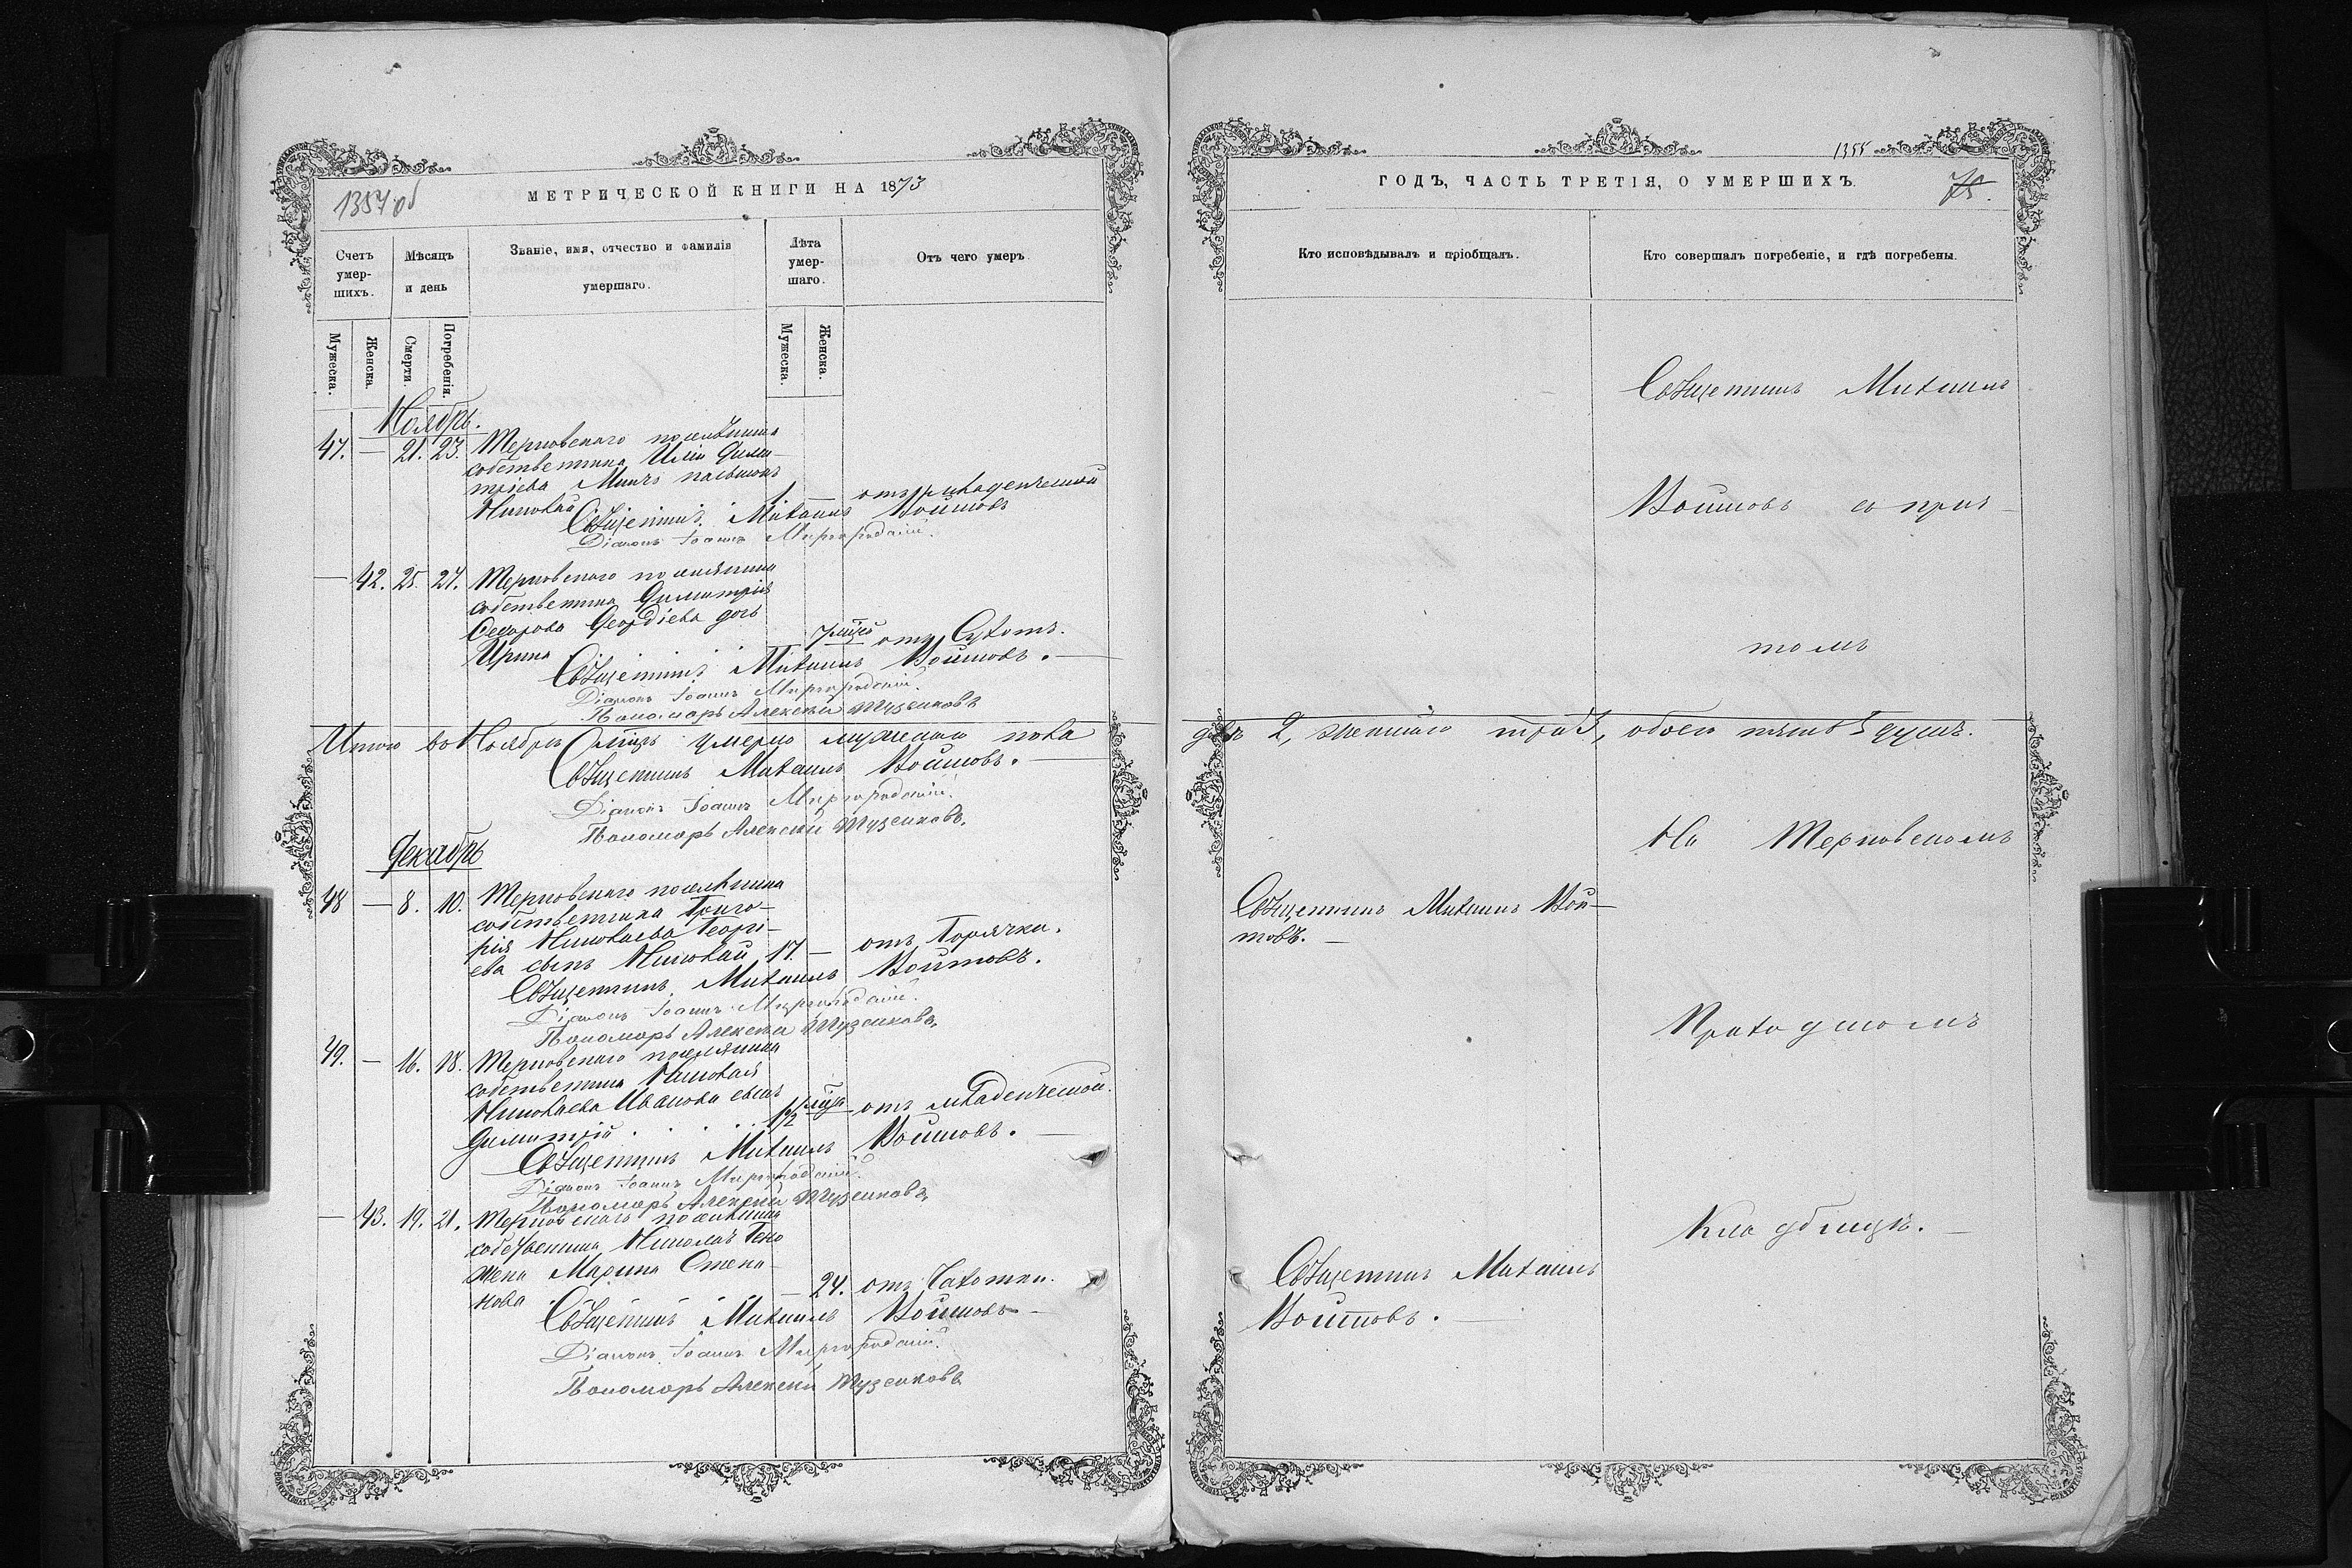 1354 об
МЕТРИЧЕСКОЙ КНИГИ НА 1873
Счетъ умер-шихъ.
Мѣсяцъ и день
Званіе, имя, отчество и фамилія умершаго.
Лѣта умер-шаго.
Отъ чего умеръ
Мужеска.
Женска.
Смерти.
Погребенія.
Мужеска.
Женска.
Ноябрь.
47. — 21. 23. Терновскаго поселянина
собственника Ильи Дими-
тріева
Николай 1 — отъ младенческой
Священникъ Михаилъ Войтовъ
Діаконъ Іоаннъ Миргородскій.
— 42. 25. 27. Терновскаго поселянина
собственника Димитрія
Ѳедорова Георгіева дочь
Ирина 7 мцей отъ Сухотъ.
Священникъ Михаилъ Войтовъ. —
Діаконъ Іоаннъ Миргородскій.
Пономарь Алексѣй Музенковъ
Итого во Ноябрѣ Мцѣ умерло мужеска пола
Священникъ Михаилъ Войтовъ. —
Діаконъ Іоаннъ Миргородскій.
Пономарь Алексѣй Музенковъ.
Декабрь
48 — 8. 10. Терновскаго поселянина
собственника Григо-
рія Николаева Георгі-
ева сынъ Николай 17. — отъ Горячки.
Священникъ Михаилъ Войтовъ.
Діаконъ Іоаннъ Миргородскій.
Пономарь Алексѣй Музенковъ.
49. — 16. 18. Терновскаго поселянина
собственника Николая
Николаева Иванова сынъ
Димитрій 1/2 мцъ — отъ младенческой.
Священникъ Михаилъ Войтовъ. —
Діаконъ Іоаннъ Миргородскій.
Пономарь Алексѣй Музенковъ
— 43. 19. 21. Терновскаго поселянина
собственника Николая
жена Марина Степа-
нова — 24. отъ Чахотки.
Священникъ Михаилъ Войтовъ —
Діаконъ Іоаннъ Миргородскій.
Пономарь Алексѣй Музенковъ
1355
ГОДЪ, ЧАСТЬ ТРЕТІЯ, О УМЕРШИХЪ.
75.
Кто исповѣдывалъ и пріобщалъ.
Кто совершалъ погребеніе, и гдѣ погребены.
Священникъ Михаилъ
Войтовъ съ прич-
томъ
два 2, женскаго три 3, обоего пять 5 душъ.
На Терновскомъ
Священникъ Михаилъ Вой-
товъ. —
Приходскомъ
Кладбищѣ. —
Священникъ Михаилъ
Войтовъ. —